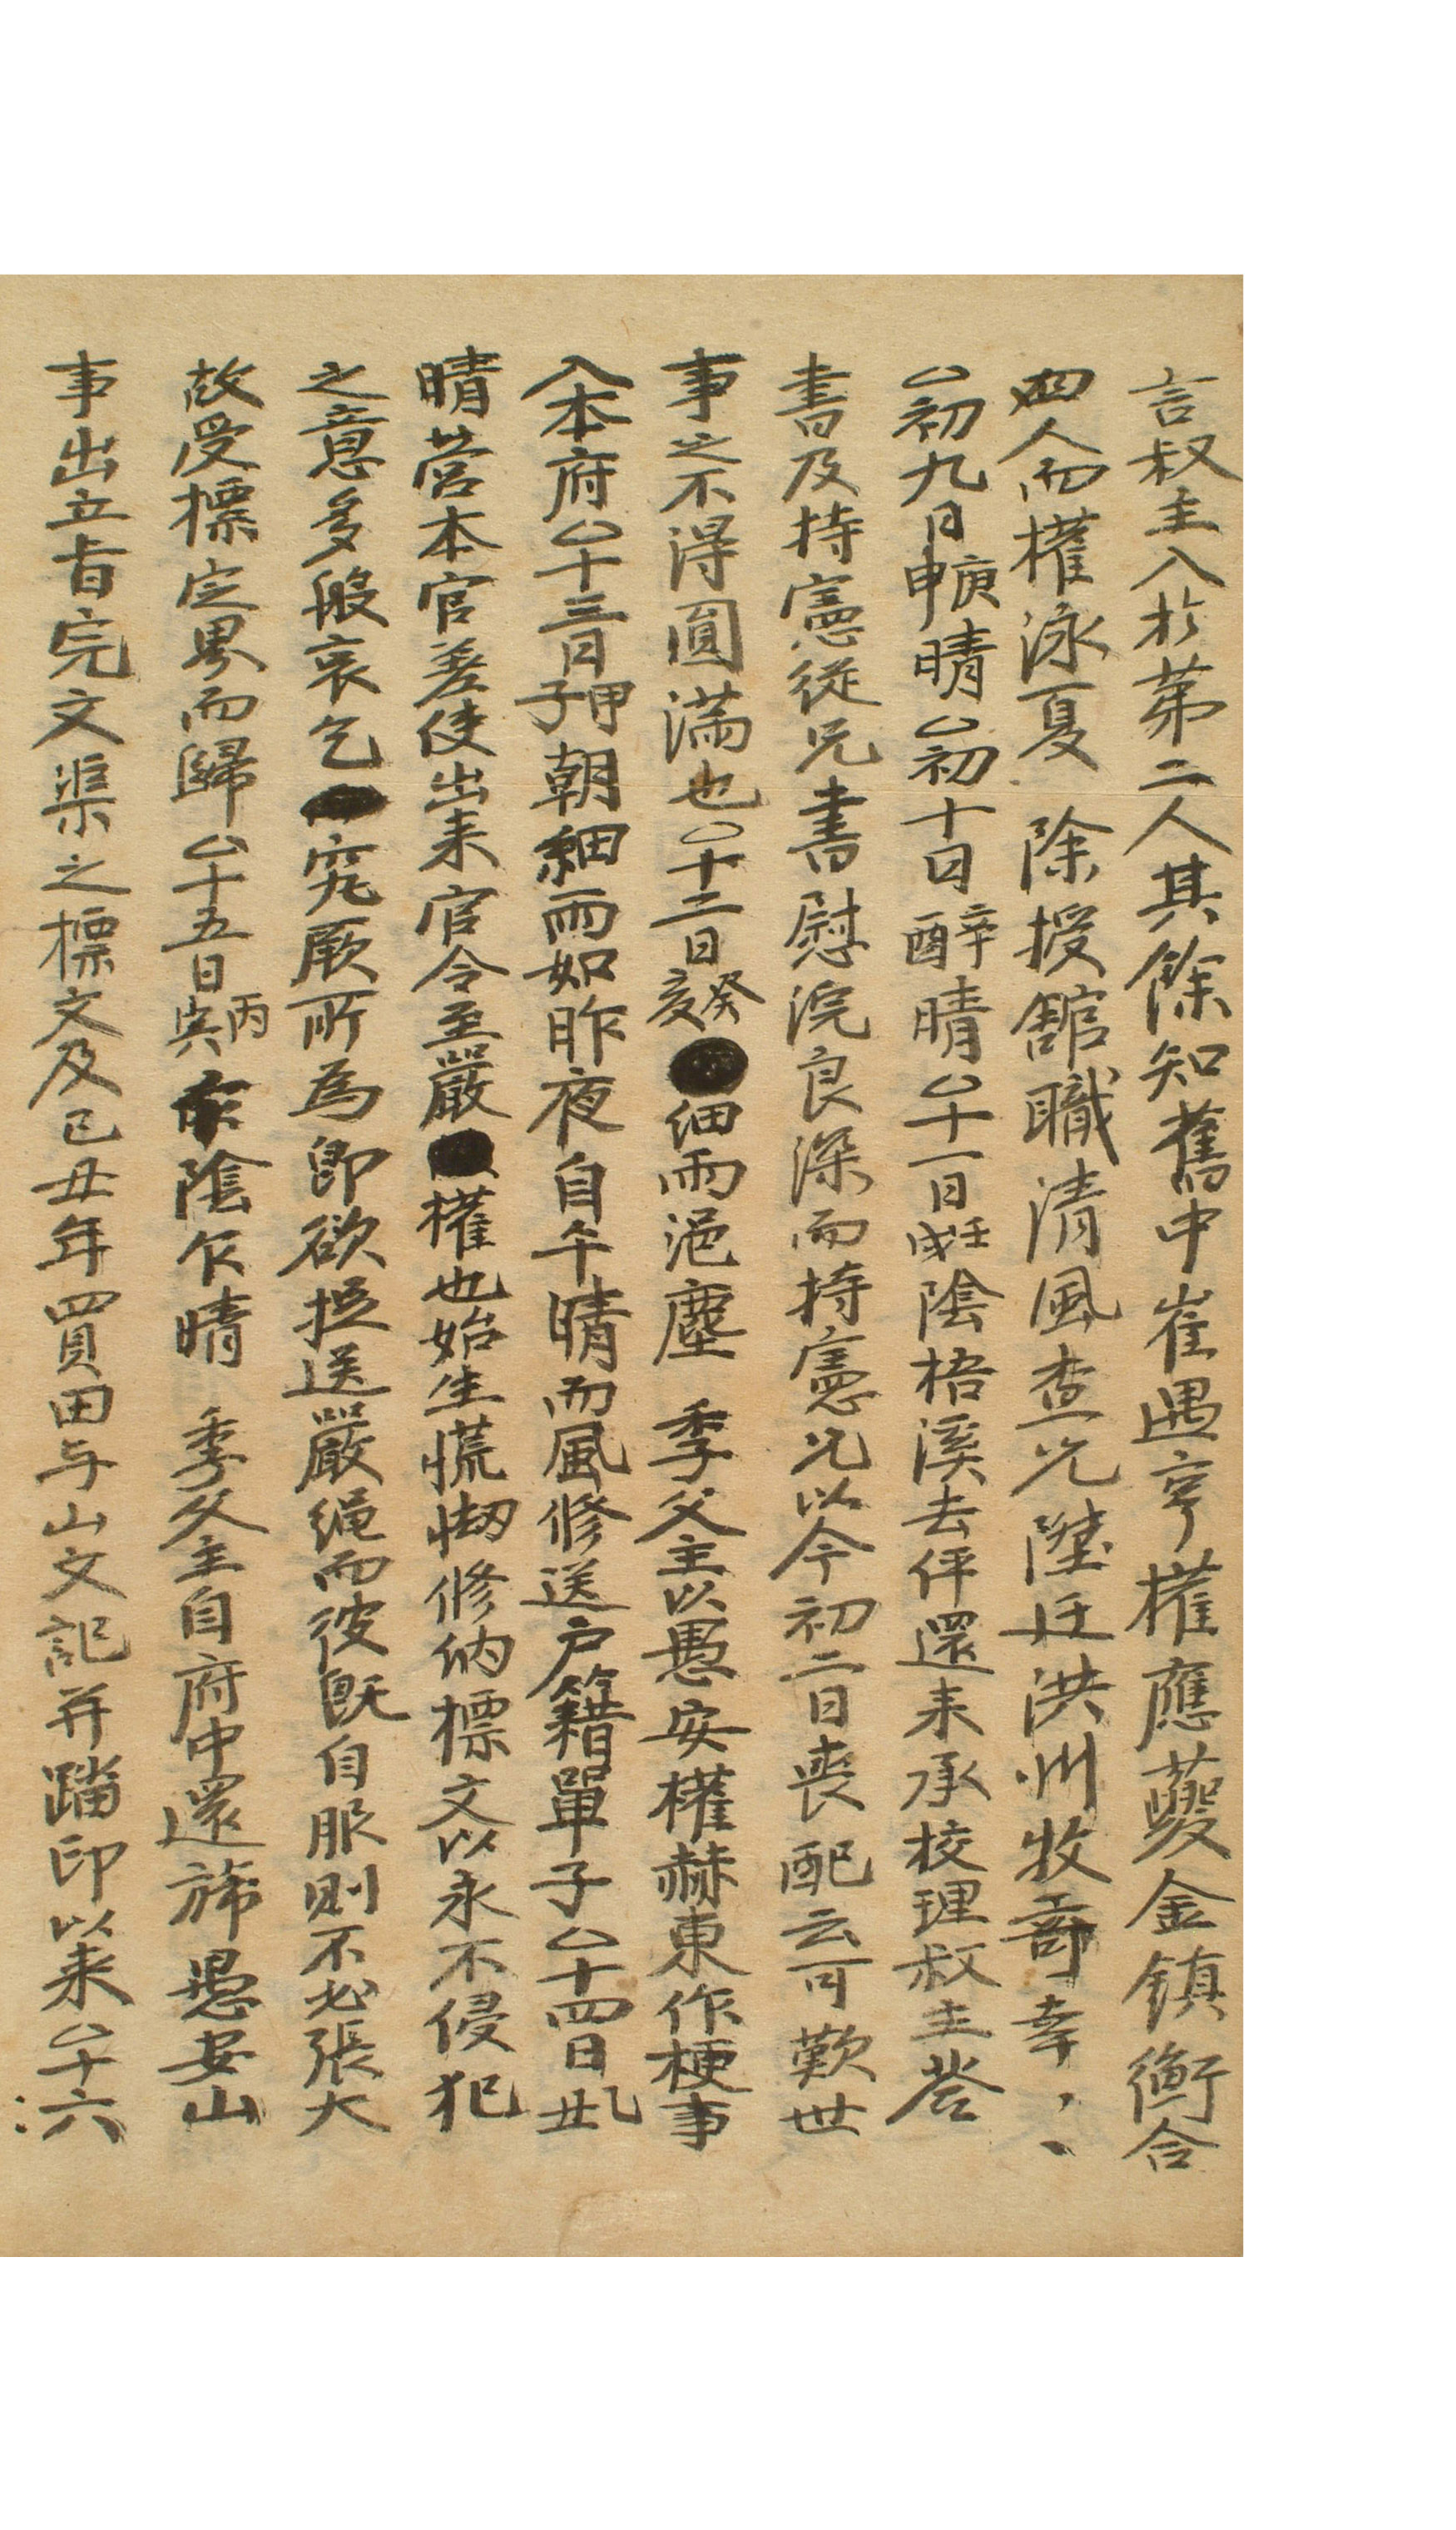 言叔主入於第二人其餘知舊中崔遇亨權應夔金鎮衡合
四人而權泳夏 除授舘職清風查兄陞迁洪州牧奇幸〻〻
〇初九日庚申晴〇初十日辛酉晴〇十一日壬戌陰梧溪去伻還来承校理叔主答
書及持憲從兄書慰浣良深而持憲兄以今初二日喪配云可歎世
事之不得圓滿也〇十二日癸亥細雨浥塵 季父主以愚安權赫東作梗事
入本府〇十三日甲子朝細雨如昨夜自午晴而風修送户籍單子〇十四日乙丑
晴營本官差使出来官令至嚴權也始生慌㤼修納標文以永不侵犯
之意多般哀乞究厥所為即欲捉送嚴繩而彼既自服則不必張大
故受標定界而歸〇十五日丙寅陰乍晴 季父主自府中還旆愚安山
事出立旨完文渠之標文及己丑年買田与山文記并踏印以来〇十六